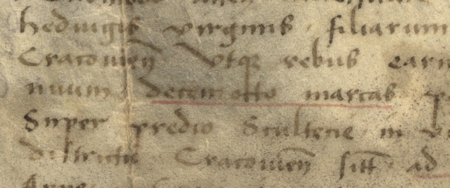 Hedvigis virginis filiarum
Cracovien Utque rebus earu
nuum decemotto marcas
Super predio Scultecie in
districtu Cracovien sitt ad